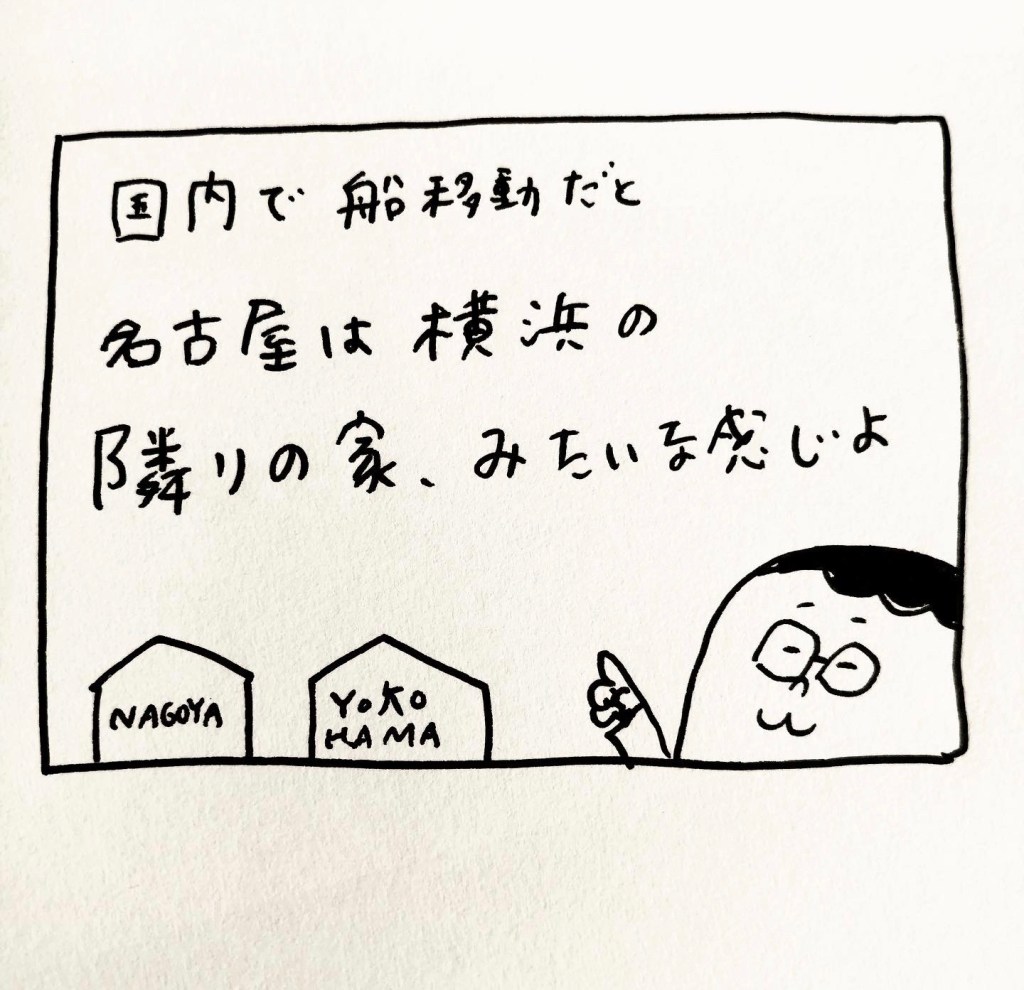 国内で船移動だと
名古屋は横浜の
隣りの家、みたいな感じよ
NAGOYA
YOKO
HAMA